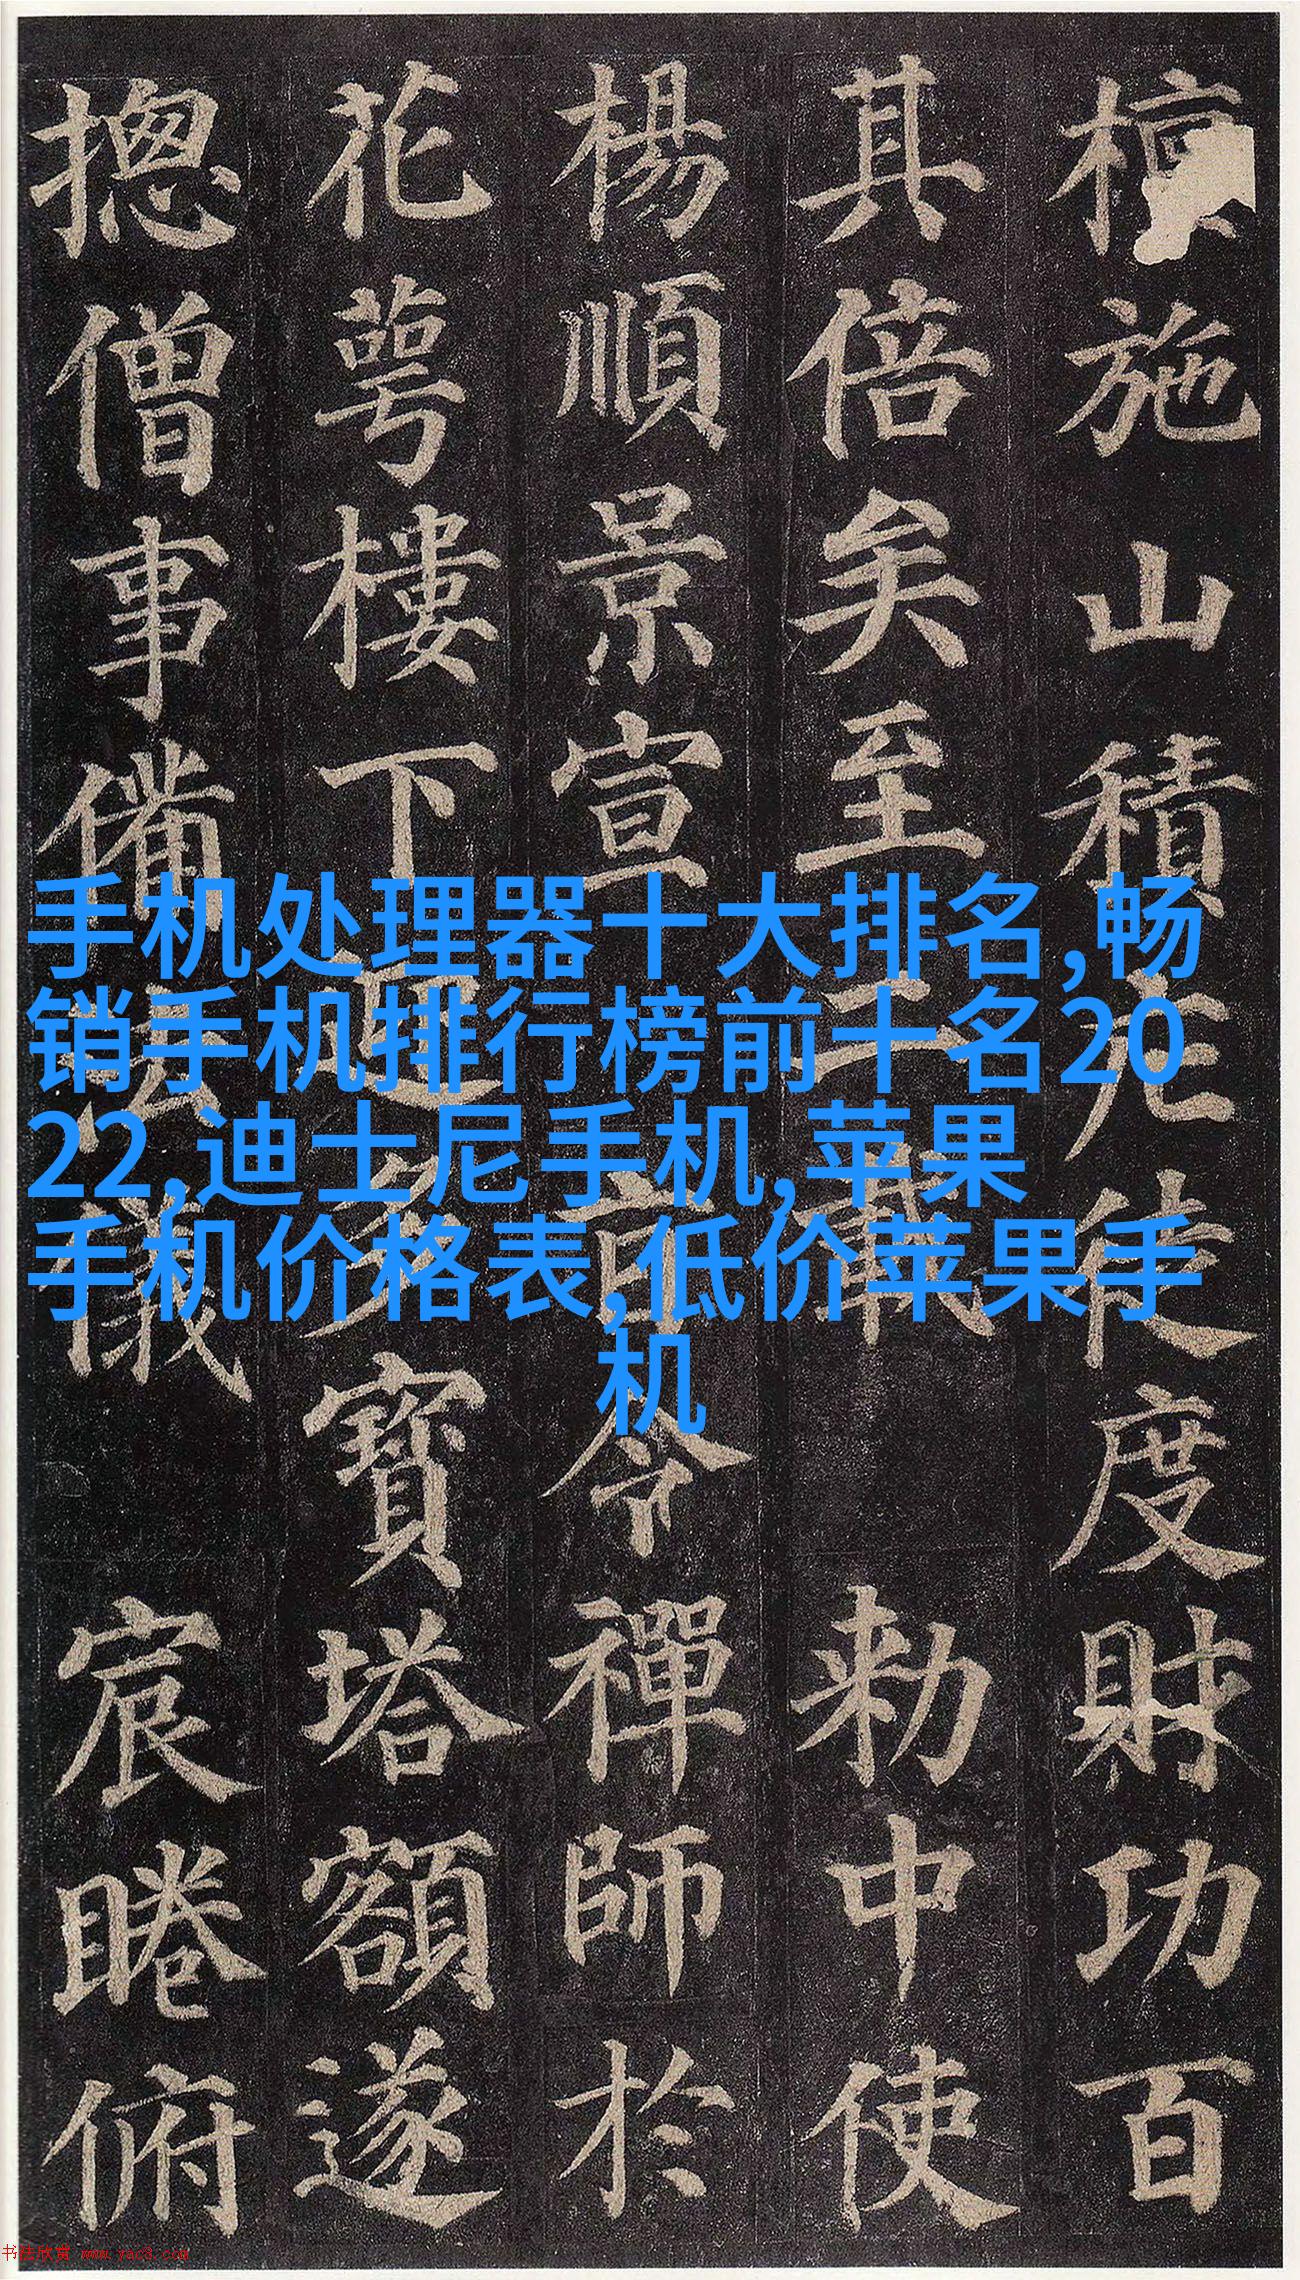 檀施山積庀徒度財功百
其倍矣至二載勑中使
楊順景宣旨令禪師於
花萼樓下迎多寶塔額遂
摠僧事備法儀宸睠俯
手机处理器十大排名,畅
销手机排行榜前十名20
22,迪士尼手机,苹果
手机价格表,低价苹果手
机
书法欣赏 www.yac3.com